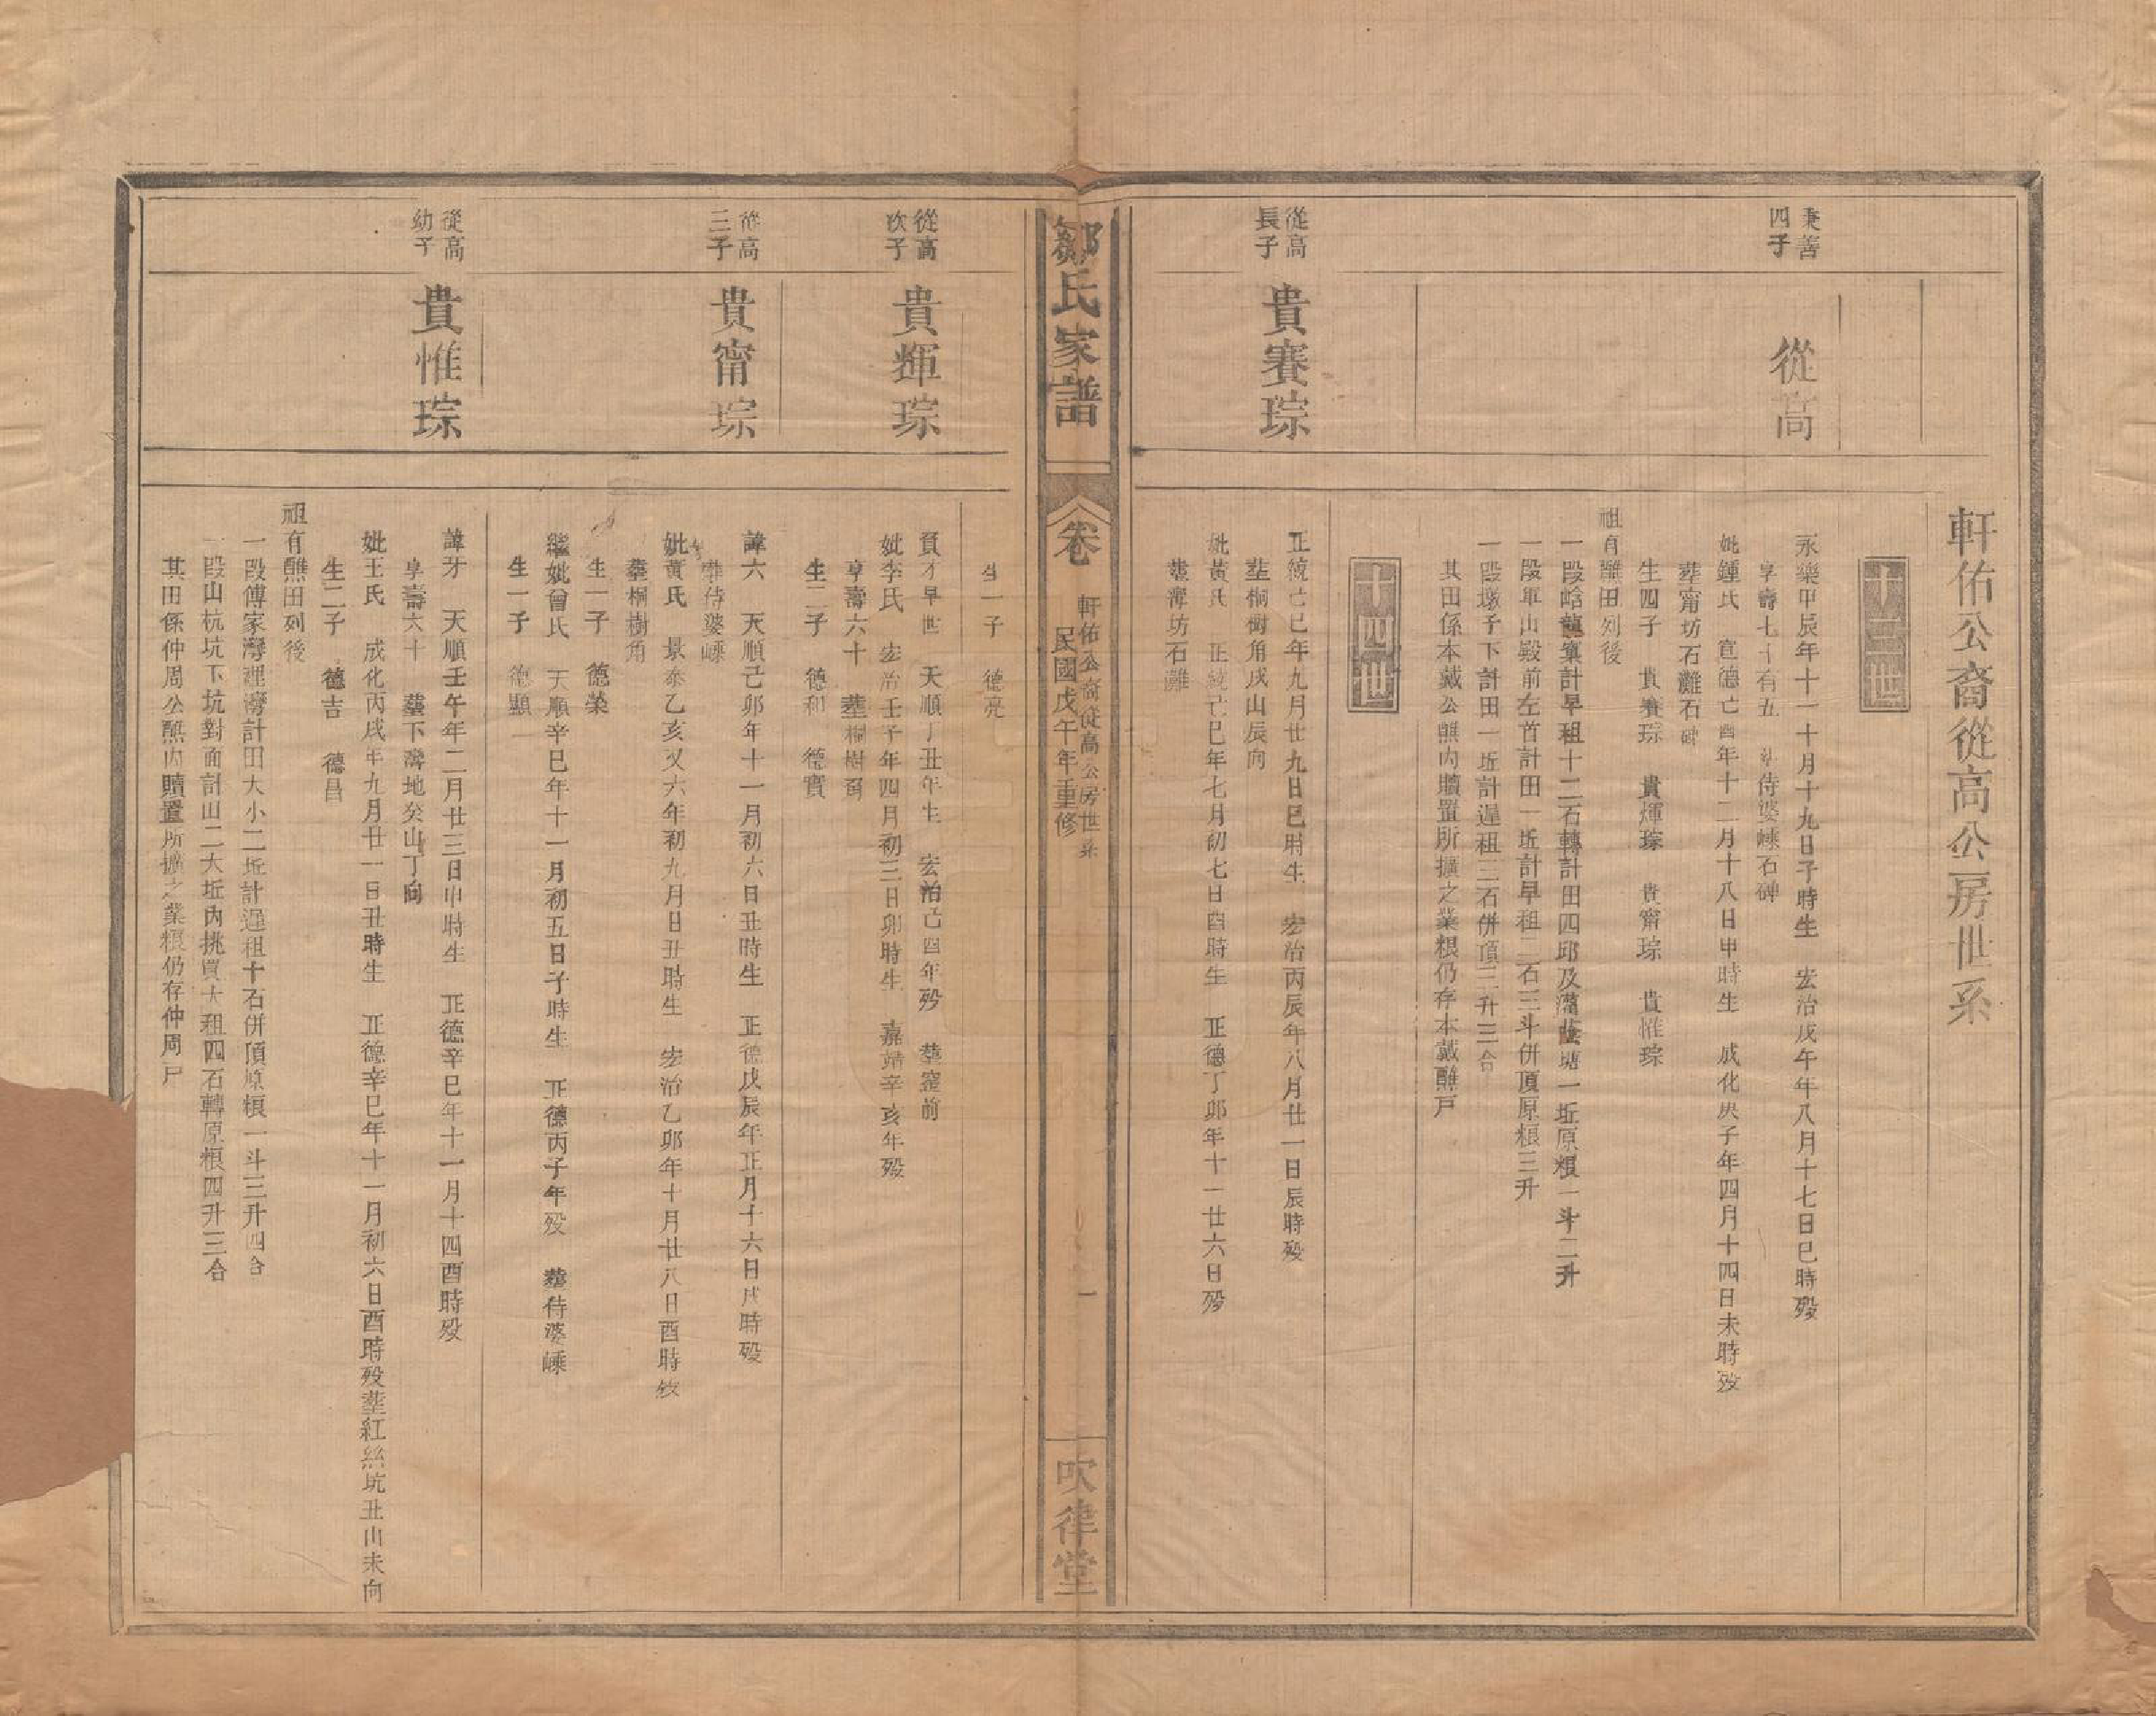 軒佑公裔從高公房世系
十三世
秉善
四子
從高
永樂甲辰年十一十月十九日子時生　宏治戊午年八月十七日巳時歿
享壽七十有五　侍婆嵊石碑
妣鍾氏　宣德己酉年十二月十八日申時生　成化庚子年四月十四日未時歿
塟甯坊石灘石碑
生四子　貴賽琮　貴輝琮　貴甯琮　貴惟琮
祖有醮田列後
一段峆龍窠計早租十二石轉計田四邱及蕩蔭塘一坵原根一斗二升
一段軍山殿前左首計田一坵計早租二石三斗併頂原根三升
一段墩子下計田一坵計遲租三石併頂二升三合
其田係本戴公醮內贖置所擴之業根仍存本戴醮戸
十四世
從高
長子
貴賽琮
正統己巳年九月廿九日巳時生　宏治丙辰年八月廿一日辰時歿
塟桐樹角戌山辰向
妣黃氏　正統己巳年七月初七日酉時生　正德丁卯年十一廿六日歿
塟灣坊石灘
鄒氏家譜
卷
軒佑公裔從高公房世系
民國戊午年重修
一
吹律堂
生一子　德亮
從高
次子
貴輝琮
貢才早世　天順丁丑年生　宏治己酉年歿　塟窰前
妣李氏　宏治壬子年四月初三日卯時生　嘉靖辛亥年歿
享壽六十　塟桐樹窩
生二子　德和　德實
從高
三子
貴甯琮
諱六　天順己卯年十一月初六日丑時生　正德戊辰年正月十六日戌時歿
塟侍婆嵊
妣黃氏　景泰乙亥又六年初九月日丑時生　宏治乙卯年十月廿八日酉時歿
塟桐樹角
生一子　德榮
繼妣曾氏　天順辛巳年十一月初五日子時生　正德丙子年歿　塟侍婆嵊
生一子　德顯
從高
幼子
貴惟琮
諱牙　天順壬午年二月廿三日申時生　正德辛巳年十一月十四酉時歿
享壽六十　塟下灣地癸山丁向
妣王氏　成化丙戌年九月廿一日丑時生　正德辛巳年十一月初六日酉時歿塟紅絲坑丑山未向
生二子　德吉　德昌
祖有醮田列後
一段傅家灣裡灣計田大小二坵計遲租十石併頂原根一斗三升四合
一段山杭坑下坑對面計田二大坵內挑買大租四石轉原根四升三合
其田係仲周公醮內贖置所擴之業根仍存仲周戸